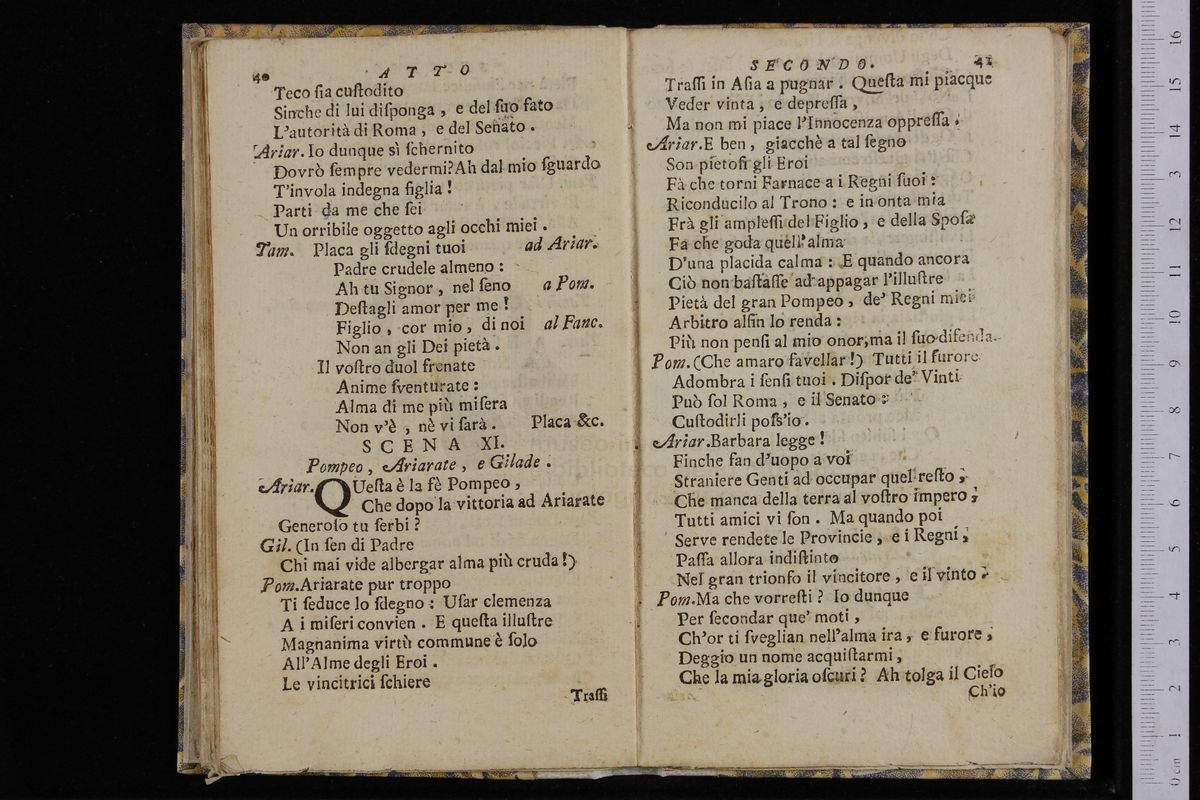 40 ATTO
Teco ſia cuſtodito
Sinche di lui diſponga , e del ſuo fato
L'autorità di Roma , e del Senato .
Ariar. Io dunque sì ſchernito
Dovrò ſempre vedermi? Ah dal mio ſguardo
T'invola indegna figlia !
Parti da me che ſei
Un orribile oggetto agli occhi miei .
Tam. Placa gli ſdegni tuoi ad Ariar.
Padre crudele almeno :
Ah tu Signor , nel ſeno a Pom.
Deſtagli amor per me !
Figlio , cor mio , di noi al Fanc.
Non an gli Dei pietà .
Il voſtro duol frenate
Anime ſventurate :
Alma di me più miſera
Non v'è , nè vi ſarà . Placa &c.
SCENA XI.
Pompeo , Ariarate , e Gilade .
Ariar. Queſta è la fè Pompeo ,
Che dopo la vittoria ad Ariarate
Generoſo tu ſerbi ?
Gil. (In ſen di Padre
Chi mai vide albergar alma più cruda !)
Pom. Ariarate pur troppo
Ti ſeduce lo ſdegno : Uſar clemenza
A i miſeri convien . E queſta illuſtre
Magnanima virtù commune è ſolo
All'Alme degli Eroi .
Le vincitrici ſchiere
Traſſi
SECONDO. 41
Traſſi in Aſia a pugnar . Queſta mi piacque
Veder vinta , e depreſſa ,
Ma non mi piace l'Innocenza oppreſſa .
Ariar. E ben , giacchè a tal ſegno
Son pietoſi gli Eroi
Fà che torni Farnace a i Regni ſuoi :
Riconducilo al Trono : e in onta mia
Frà gli ampleſſi del Figlio , e della Spoſa
Fa che goda quell'alma
D'una placida calma : E quando ancora
Ciò non baſtaſſe ad appagar l'illuſtre
Pietà del gran Pompeo , de' Regni miei
Arbitro alfin lo renda :
Più non penſi al mio onor, ma il ſuo difenda.
Pom. (Che amaro favellar !) Tutti il furore
Adombra i ſenſi tuoi . Diſpor de' Vinti
Può ſol Roma , e il Senato :
Cuſtodirli poſs'io .
Ariar. Barbara legge !
Finche fan d'uopo a voi
Straniere Genti ad occupar quel reſto ,
Che manca della terra al voſtro impero ,
Tutti amici vi ſon . Ma quando poi
Serve rendete le Provincie , e i Regni ,
Paſſa allora indiſtinto
Nel gran trionfo il vincitore , e il vinto .
Pom. Ma che vorreſti ? Io dunque
Per ſecondar que' moti ,
Ch'or ti ſveglian nell'alma ira , e furore ,
Deggio un nome acquiſtarmi ,
Che la mia gloria oſcuri ? Ah tolga il Cielo
Ch'io
0 cm 1 2 3 4 5 6 7 8 9 10 11 12 13 14 15 16